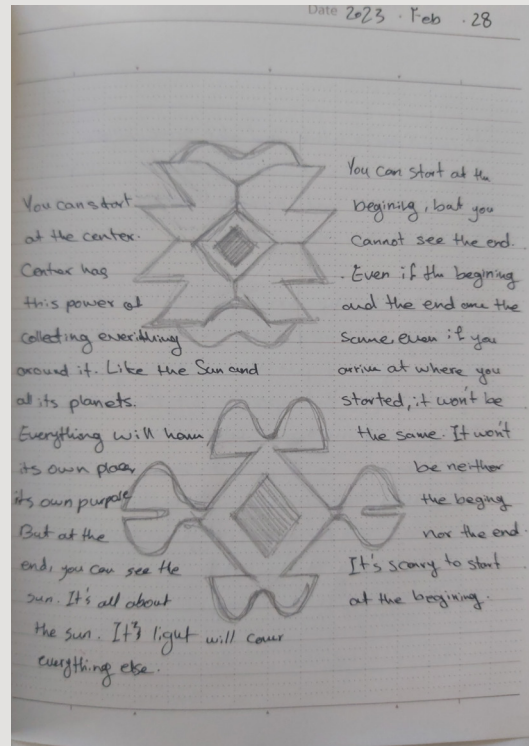 Date 2023 . Feb . 28
You can start
at the center.
Center has
this power of
collecting everithing
around it. Like the Sun and
all its planets.
Everything will have
its own place,
its own purpose
But at the
end, you can see the
sun. It's all about
the sun. It's light will cover
everything else.
You can start at the
begining, but you
cannot see the end.
. Even if the begining
and the end are the
same, even if you
arrive at where you
started, it won't be
the same. It won't
be neither
the beging
nor the end.
It's scary to start
at the begining.